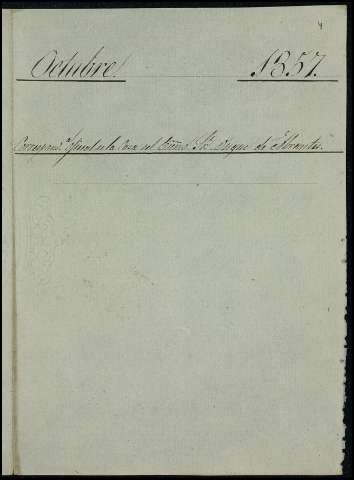 4
Octubre. 1857.
Correspond.ª oficial de la Casa del Exmo. Sr. Duque de Abrantes.